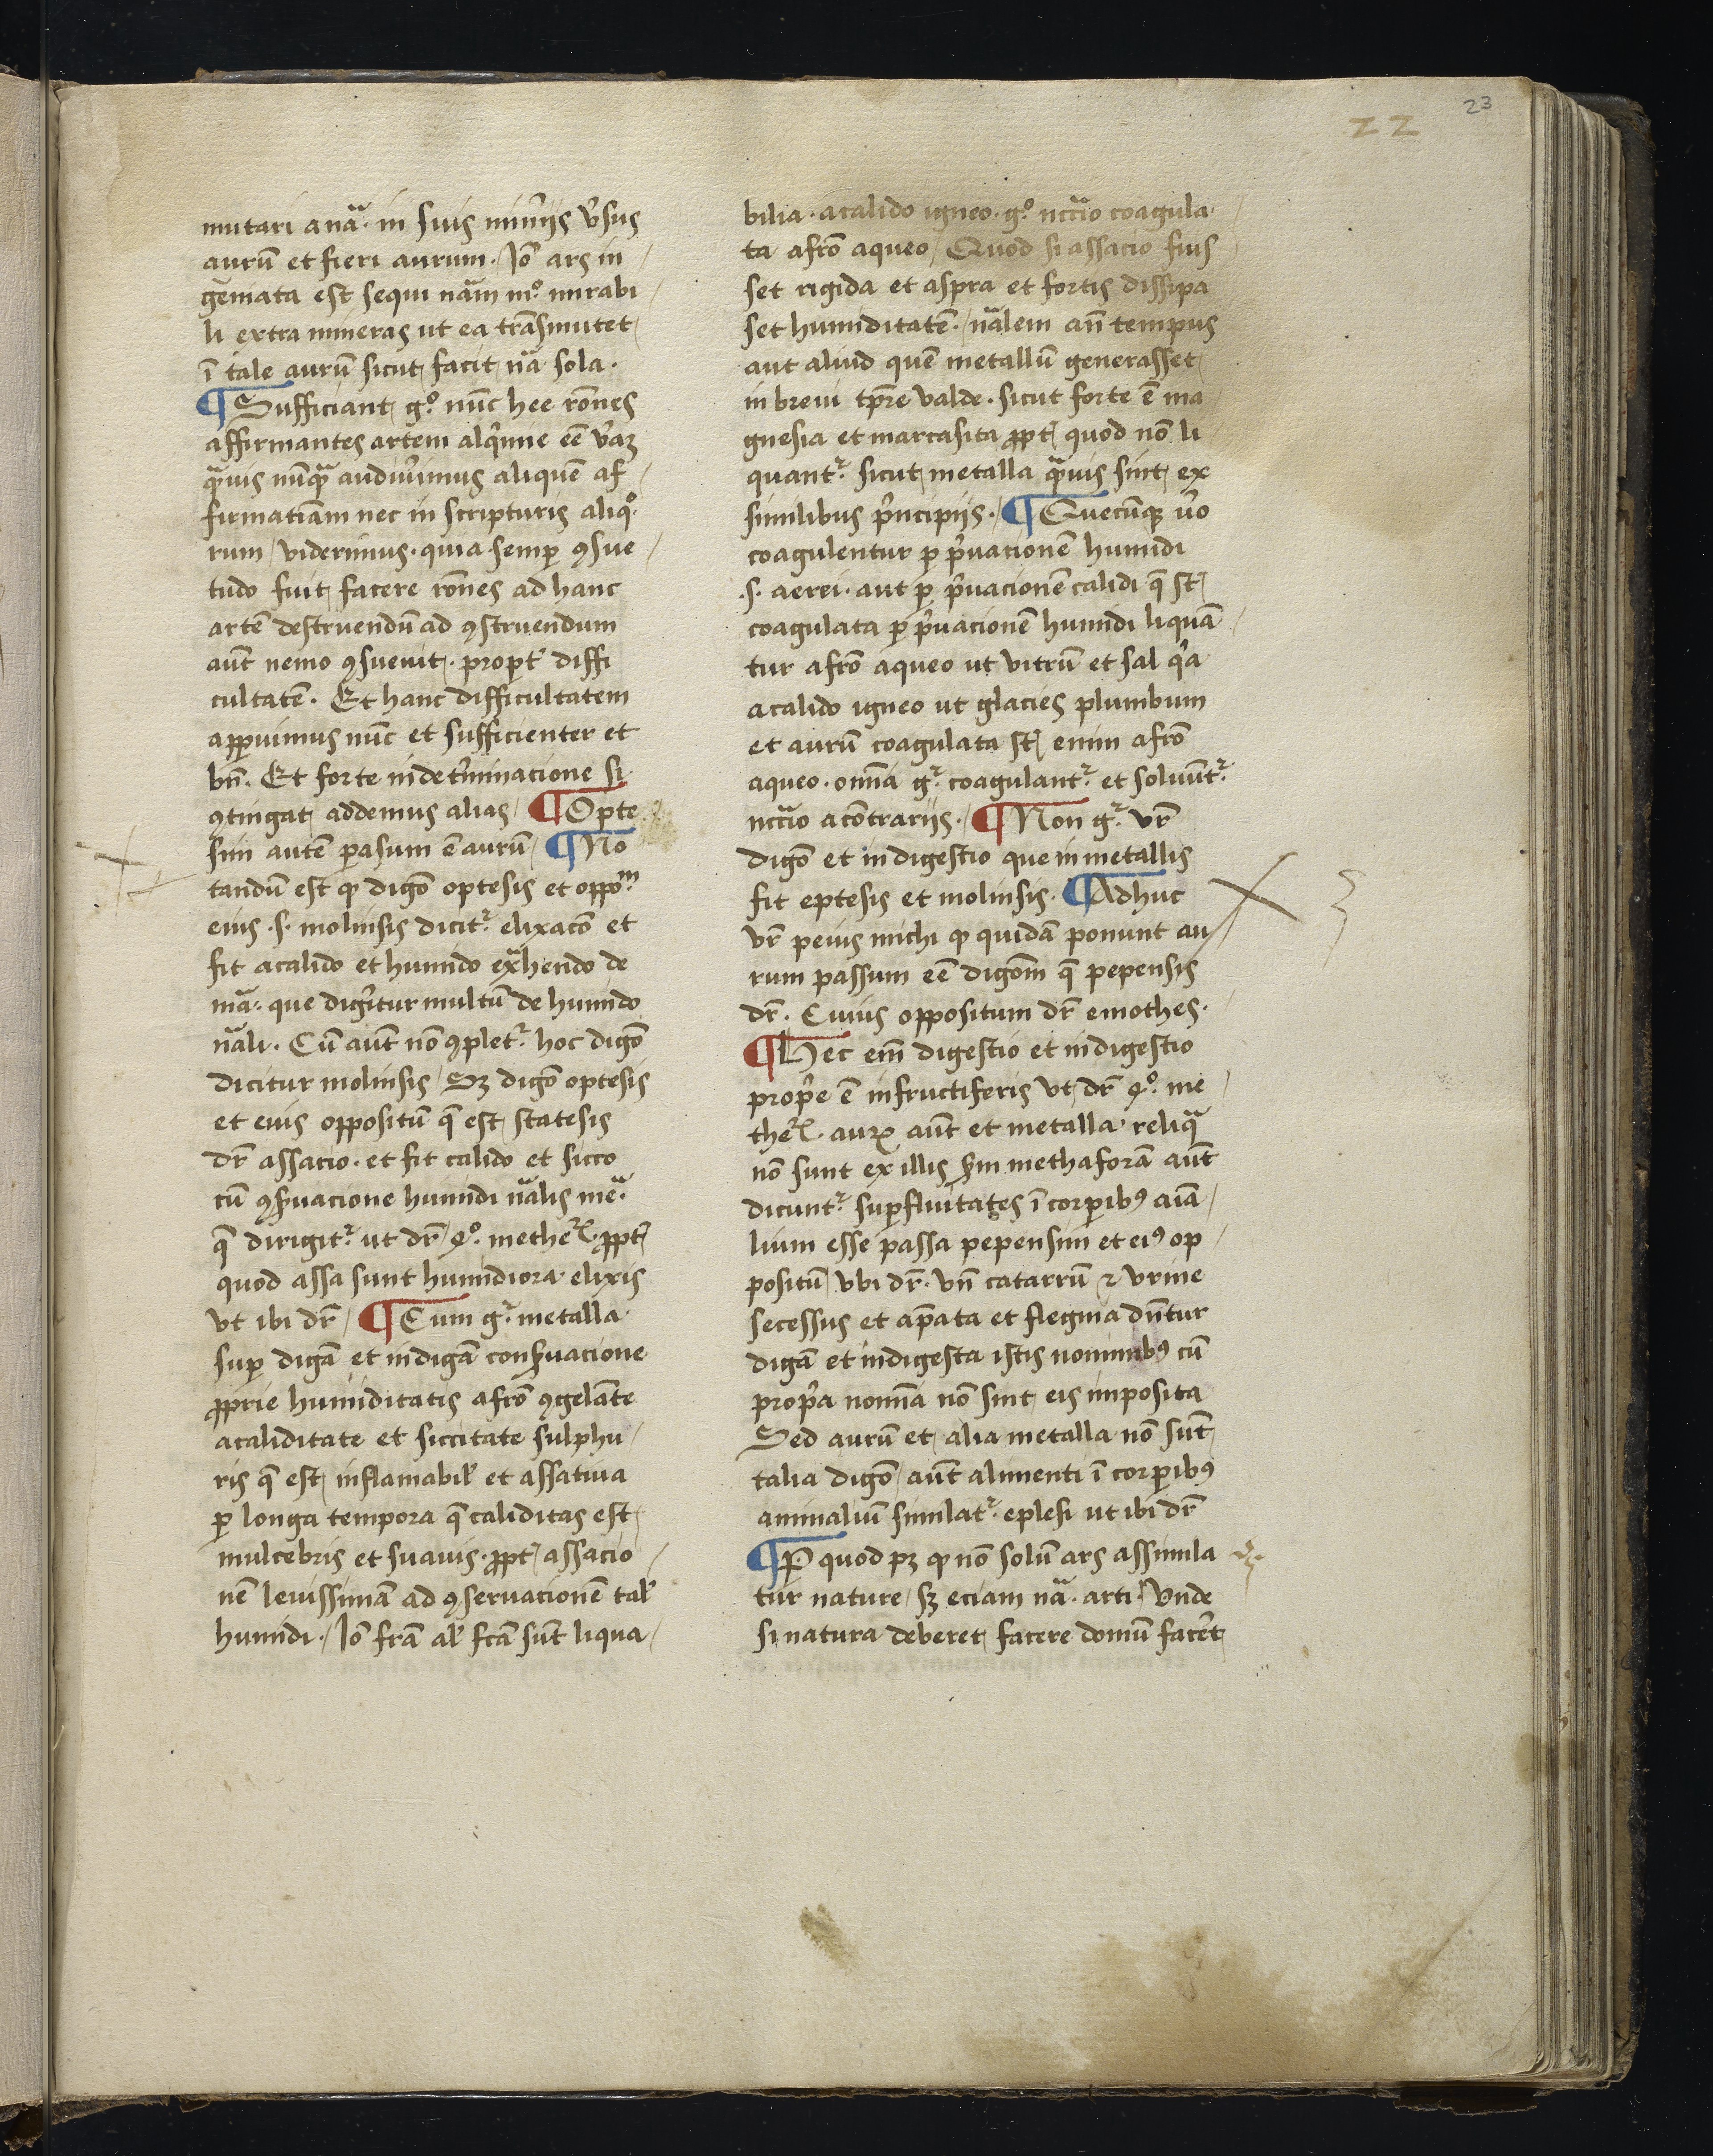 22
23
mutari a nãa. in suis miñijs v̉sus
aurũ et fieri aurum. Iõ ars in
geniata est sequi nãm mͦ. mirabi
li extra mineras ut ea trãsmutet
ĩ tale aurũ sicut facit nã sola.
¶ Sufficiant gͦ. nũc hee rõnes
affirmantes artem alqimie eẽ v̉aꝫ
qᷓuis nũqᷓ audiv̉imus aliquẽ af
firmatiãm nec in scripturis aliqͦ.
rum viderimus. quia semꝑ ꝯsue
tudo fuit facere rõnes ad hanc
artẽ destruendũ ad ꝯstruendum
aũt nemo ꝯsuevit. propt̉ diffi
cultatẽ. Et hanc difficultatem
aꝑuimus nũc et sufficienter et
bñ. Et forte in det̉minacione si
ꝯtingat addemus alias ¶ Opte
sim autẽ pasum ẽ aurũ ¶ No
tandũ est ꝙ digõ optesis et oppoᵐ.
eius .s. molinsis dicit᷑. elixacõ et
fit a calido et humido exᷓhendo de
mãa. que digeritur multũ de humido
nãli. Cũ aũt nõ ꝯplet᷑. hoc digõ
dicitur molinsis Sꝫ digõ optesis
et eius oppositũ q̃ est statesis
dr̃ assacio. et fit calido et sicco
cũ ꝯsẽuacione humidi nãlis meᷓ.
q̃ dirigit᷑. ut dr̃ 4ͦ. methe᷑l. ꝓpt̉
quod assa sunt humidiora elixis
ut ibi dr̃ ¶ Cum g᷑. metalla
suꝑ digã et indigã conseruacione
ꝓprie humiditatis a frõ ꝯgelãte
a caliditate et siccitate sulphu
ris q̃ est inflamabil̉ et assatiua
ꝑ longa tempora q̃ caliditas est
mulcebris et suavis. ꝓpt̉ assacio
nẽ levissimã ad ꝯservacionẽ tal̉
humidi. Iõ frã al̉ fcã sũt liqua
bilia. a calido igneo. gͦ. nccãio coagula
ta a frõ aqueo Quod si assacio fuis
set rigida et aspra et fortis dissipa
set humiditatẽ. nãlem añ tempus
aut aliud quẽ metallũ generasset
in brevi tp̃re valde. sicut forte ẽ ma
gnesia et marcasita ꝓpt̉ quod nõ li
quant᷑. sicut metalla qᷓuis sint ex
similibus pͥncipijs. ¶ Quecũqꝫ v̉o
coagulentur ꝑ pͥuacionẽ humidi
.s. aerei. aut ꝑ pͥuacionẽ calidi q̃ st̃
coagulata ꝑ pͥuacionẽ humidi liquã
tur a frõ aqueo ut vitrũ et sal qͥa
a calido igneo ut glacies plumbum
et aurũ coagulata st̃ enim a frõ
aqueo. omĩa g᷑. coagulant᷑. et solvũt᷑.
nccãio a cõtrarijs. ¶ Non g᷑. vr̃
digõ et indigestio que in metallis
fit eptesis et molinsis. ¶ Adhuc
vr̃ peius michi ꝙ quidã ponunt au
rum passum eẽ digõm q̃ pepensis
dr̃. Cuius oppositum dr̃ emothes.
¶ Hec em̃ digestio et indigestio
proprͥe ẽ in fructiferis ut dr̃ 4ͦ. me
the᷑l. auꝝ aũt et metalla reliqᷓ
nõ sunt ex illis sm̃ methaforã aũt
dicunt᷑. suꝑfluitates ĩ corꝑibꝰ aĩa
lium esse passa pepensim et eiꝰ op
positũ ubi dr̃. vñ catarrũ ⁊ urine
secessus et ap̃ata et flegma dñtur
digã et indigesta istis nominibꝰ cũ
proprͥa nomĩa nõ sint eis imposita
Sed aurũ et alia metalla nõ sũt
talia digõ aũt alimenti ĩ corꝑibꝰ
animaliũ similat᷑. eplesi ut ibi dr̃
¶ P. quod pꝫ ꝙ nõ solũ ars assimila
tur nature sꝫ eciam nã. arti Unde
si natura deberet facere domũ facẽt